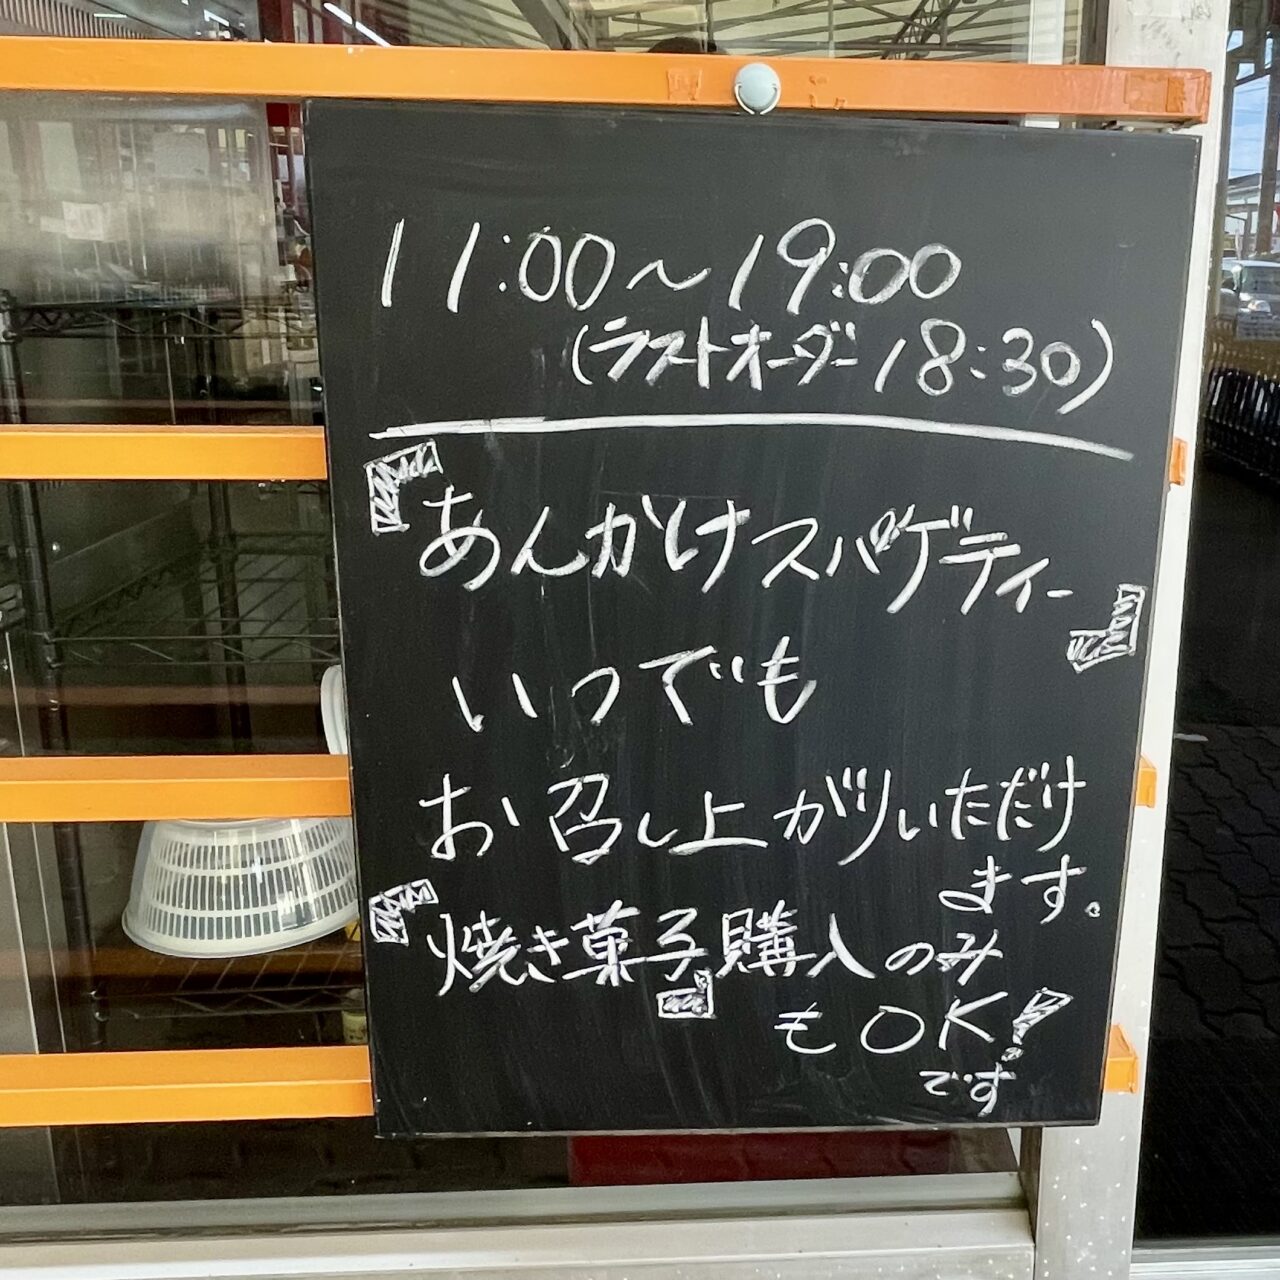 11:00〜19:00
(ラストオーダー18:30)
「あんかけスパゲティー」
いつでも
お召し上がりいただけ
ます。
「焼き菓子」購入のみ
もOK!
です